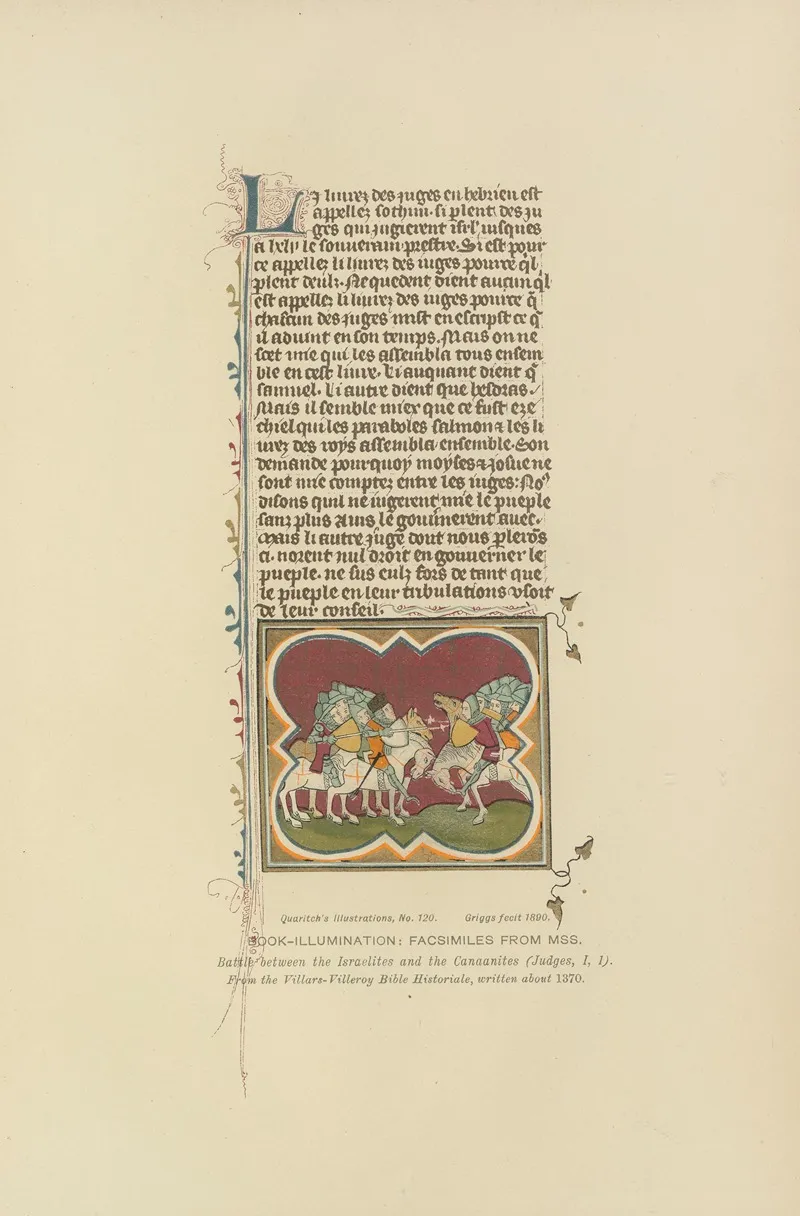 Li liurez des juges en hebrieu est
appellez sothim. si plent des ju
ges qui jugierent isrl' iusques
a hely le souuerain prestre. Si est pour
ce appellez li liurez des iuges pource q̃l
plent deulz. Nequedent dient aucun q̃l
est appellez li liurez des iuges pource q̃
chascun des juges mist en escript ce q̃
il aduint en son temps. Mais on ne
scet mie qui les assembla tous ensem
ble en cest liure. Li auquant dient q̃
samuel. Li autre dient que hesdras.
Mais il semble miex que ce fust eze
chiel qui les paraboles salmon ⁊ les li
urez des roys assembla ensemble. Son
demande pourquoy moyses ⁊ josue ne
sont mie comptez entre les iuges: No⁹
disons quil ne iugerent mie le pueple
sanz plus ains le gouuernerent auec.
Mais li autre juge dont nous plerõs
ci. norent nul droit en gouuerner le
pueple. ne sus eulz fors de tant que
le pueple en leur tribulations vsoit
de leur conseil.
Quaritch's Illustrations, No. 120. Griggs fecit 1890.
BOOK-ILLUMINATION: FACSIMILES FROM MSS.
Battle between the Israelites and the Canaanites (Judges, I, 1).
From the Villars-Villeroy Bible Historiale, written about 1370.